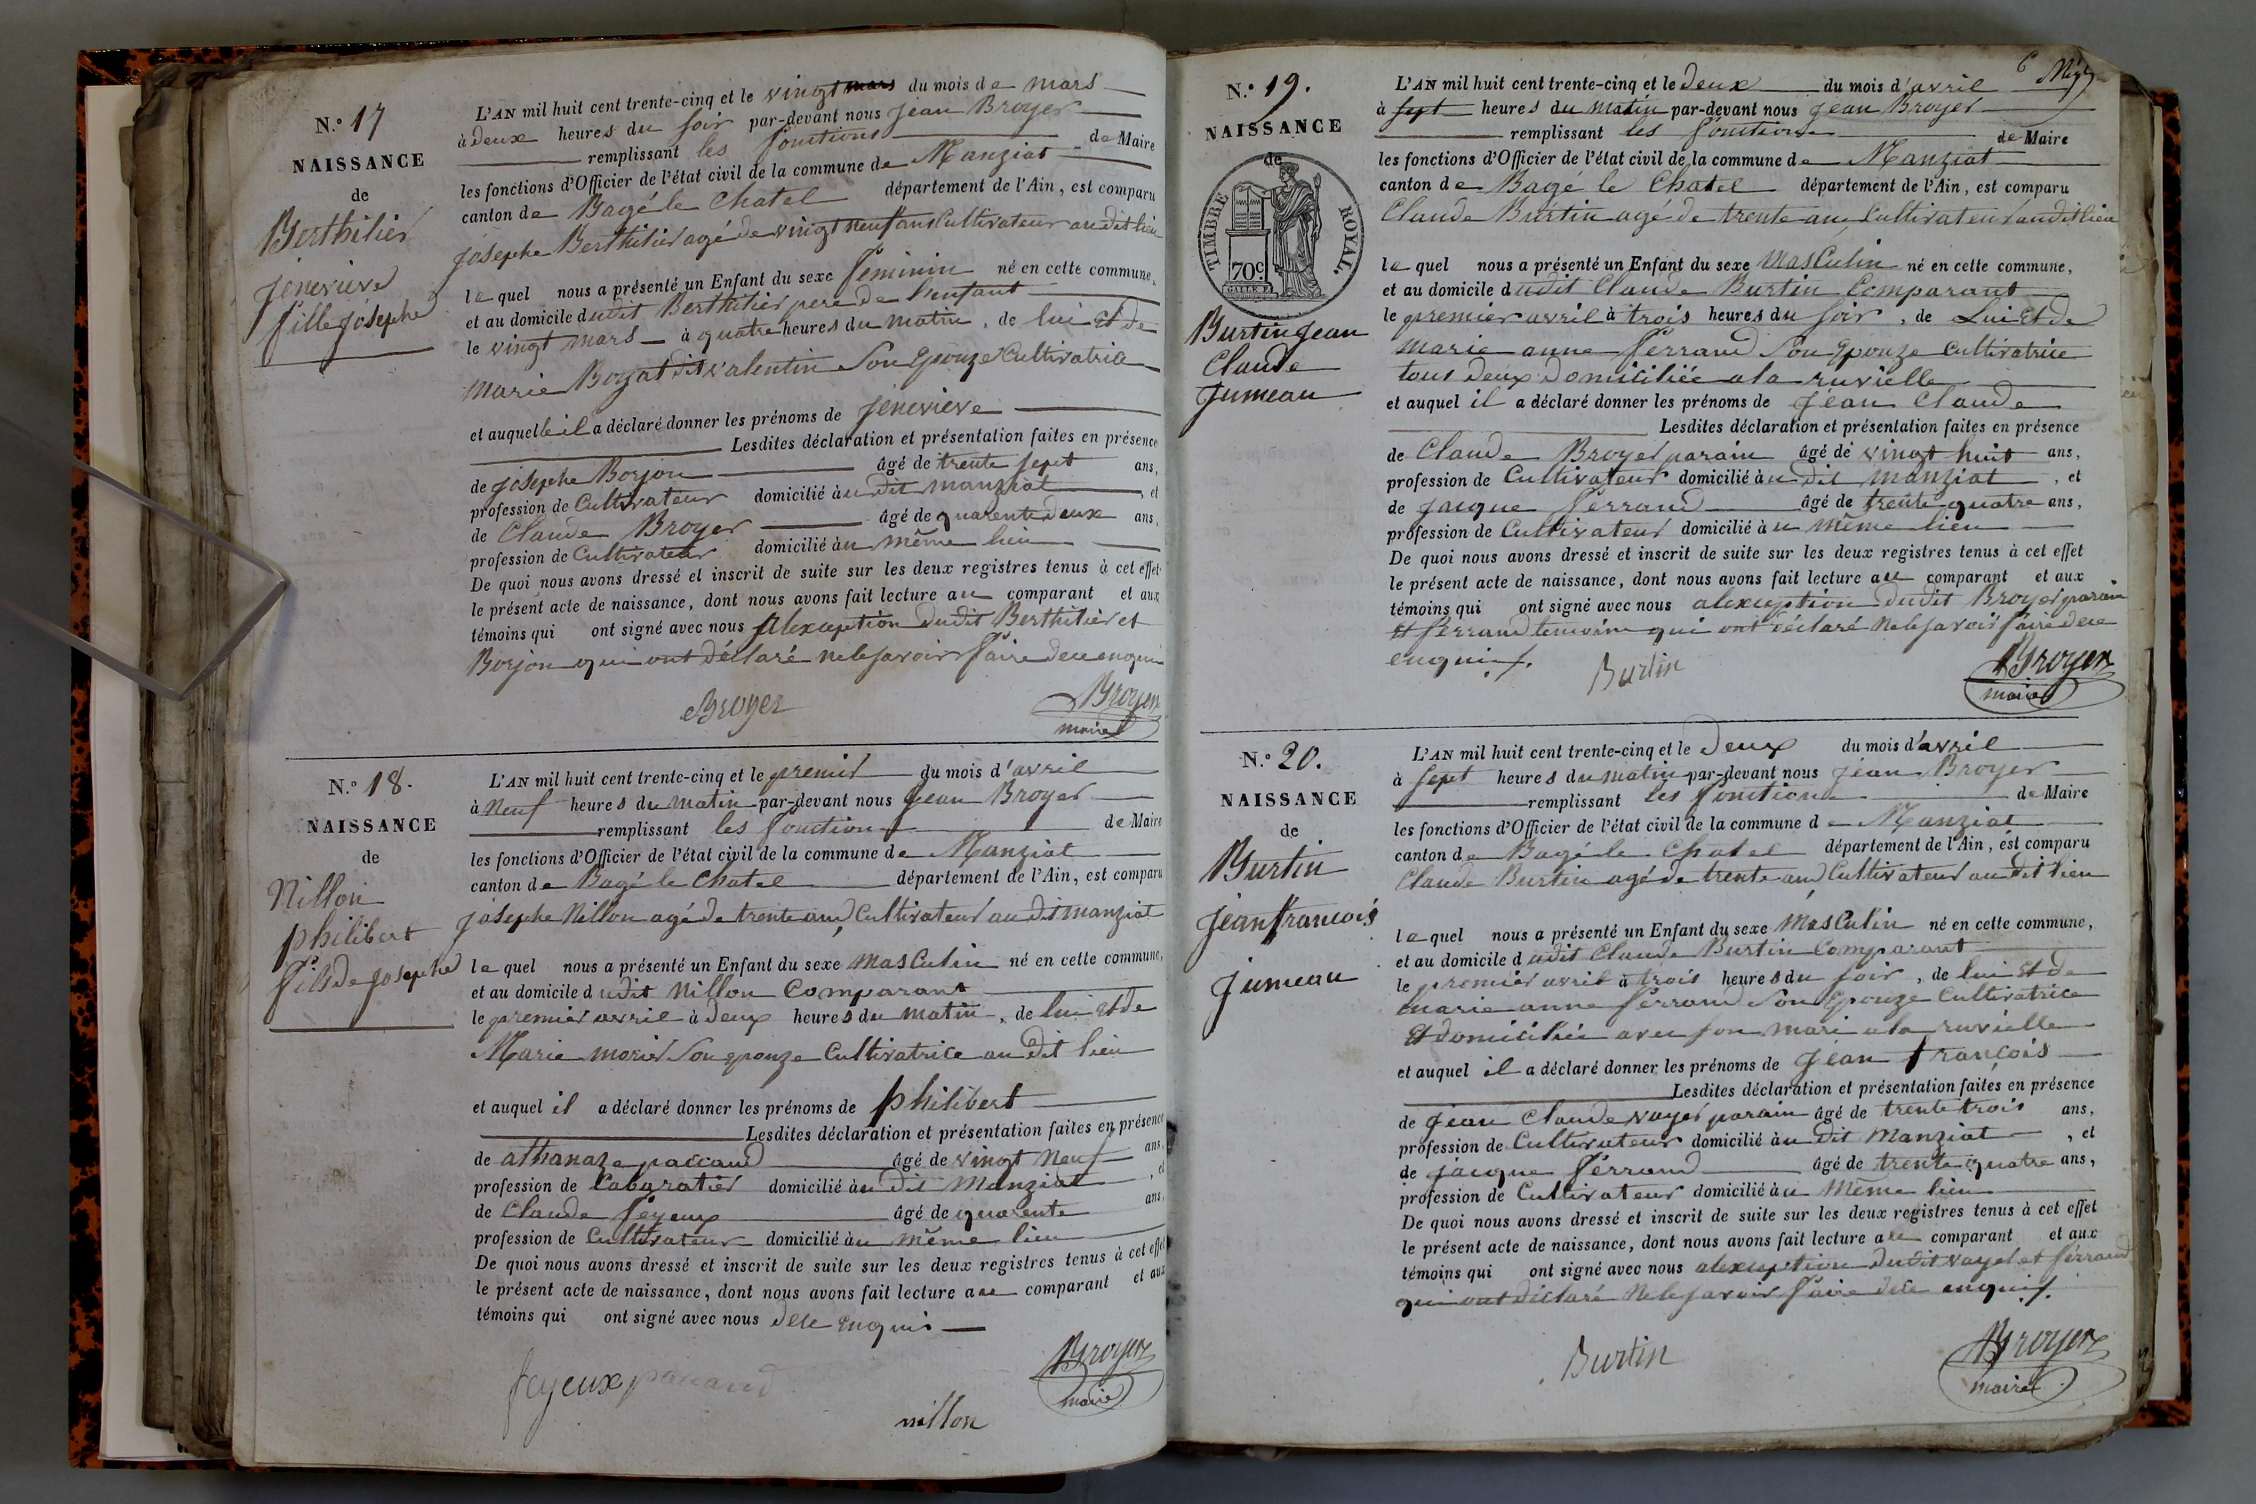 N.º 17
NAISSANCE
de
Berthilier
jenevieve
fille josephe
L'AN mil huit cent trente-cinq et le vingt mars du mois de mars
à deux heures du soir par-devant nous jean Broyer
remplissant les fonctions de Maire
les fonctions d'Officier de l'état civil de la commune de Manziat
canton de Bagé le Chatel département de l'Ain, est comparu
josephe Berthilier agé de vingt neuf ans Cultivateur au dit lieu
lequel nous a présenté un Enfant du sexe feminin né en cette commune,
et au domicile dudit Berthilier pere de l'enfant
le vingt mars à quatre heures du matin, de lui et de
marie Boyat dit valentin son Epouze Cultivatrice
et auquelle il a déclaré donner les prénoms de jenevieve
Lesdites déclaration et présentation faites en présence
de josephe Borjon âgé de trente sept ans,
profession de Cultivateur domicilié àu dit manziat, et
de Claude Broyer âgé de quarente deux ans,
profession de Cultivateur domicilié àu même lieu
De quoi nous avons dressé et inscrit de suite sur les deux registres tenus à cet effet
le présent acte de naissance, dont nous avons fait lecture au comparant et aux
témoins qui ont signé avec nous alexception dudit Berthilier et
Borjon qui ont déclaré ne le savoir faire de ce enquis
Broyer
Broyer
maire
N.º 18.
NAISSANCE
de
Nillon
philibert
fils de josephe
L'AN mil huit cent trente-cinq et le premier du mois d'avril
à neuf heures du matin par-devant nous jean Broyer
remplissant les fonction de Maire
les fonctions d'Officier de l'état civil de la commune de Manziat
canton de Bagé le Chatel département de l'Ain, est comparu
josephe Nillon agé de trente ans, Cultivateur au dit manziat
lequel nous a présenté un Enfant du sexe masCulin né en cette commune,
et au domicile dudit Nillon Comparant
le premier avril à deux heures du matin, de lui et de
Marie morier son epouze Cultivatrice au dit lieu
et auquel il a déclaré donner les prénoms de philibert
Lesdites déclaration et présentation faites en présence
de athanaze paccaud âgé de vingt neuf ans,
profession de Cabaratier domicilié àu dit manziat, et
de Claude feyeux âgé de quarente ans,
profession de Cultivateur domicilié àu même lieu
De quoi nous avons dressé et inscrit de suite sur les deux registres tenus à cet effet
le présent acte de naissance, dont nous avons fait lecture au comparant et aux
témoins qui ont signé avec nous de ce enquis
feyeux paccaud
Broyer
maire
nillon
N.º 19.
NAISSANCE
de
TIMBRE ROYAL.
70c
Burtin jean
Claude
jumeau
6
L'AN mil huit cent trente-cinq et le deux du mois d'avril
à sept heures du matin par-devant nous jean Broyer
remplissant les fonctions de Maire
les fonctions d'Officier de l'état civil de la commune de Manziat
canton de Bagé le Chatel département de l'Ain, est comparu
Claude Burtin agé de trente ans, Cultivateur au dit lieu
lequel nous a présenté un Enfant du sexe masCulin né en cette commune,
et au domicile dudit Claude Burtin Comparant
le premier avril à trois heures du soir, de Lui et de
marie anne ferrand son Epouze cultivatrice
tous deux domiciliée a la ruvielle
et auquel il a déclaré donner les prénoms de jean Claude
Lesdites déclaration et présentation faites en présence
de Claude Broyer parain âgé de vingt huit ans,
profession de Cultivateur domicilié àu dit manziat, et
de jacque ferrand âgé de trente quatre ans,
profession de Cultivateur domicilié àu même lieu
De quoi nous avons dressé et inscrit de suite sur les deux registres tenus à cet effet
le présent acte de naissance, dont nous avons fait lecture au comparant et aux
témoins qui ont signé avec nous alexception dudit Broyer parain
et ferrand temoins qui ont déclaré ne le savoir faire de ce
enquis.
Burtin
Broyer
maire
N.º 20.
NAISSANCE
de
Burtin
jean francois
jumeau
L'AN mil huit cent trente-cinq et le deux du mois d'avril
à sept heures du matin par-devant nous jean Broyer
remplissant les fonctions de Maire
les fonctions d'Officier de l'état civil de la commune de Manziat
canton de Bagé le Chatel département de l'Ain, est comparu
Claude Burtin agé de trente ans Cultivateur au dit lieu
lequel nous a présenté un Enfant du sexe masCulin né en cette commune,
et au domicile dudit Claude Burtin Comparant
le premier avril à trois heures du soir, de lui et de
marie anne ferrand son Epouze cultivatrice
et domiciliée avec son mari a la ruvielle
et auquel il a déclaré donner les prénoms de jean françois
Lesdites déclaration et présentation faites en présence
de jean Claude vayer parain âgé de trente trois ans,
profession de Cultivateur domicilié àu dit manziat, et
de jacque ferrand âgé de trente quatre ans,
profession de Cultivateur domicilié àu même lieu
De quoi nous avons dressé et inscrit de suite sur les deux registres tenus à cet effet
le présent acte de naissance, dont nous avons fait lecture au comparant et aux
témoins qui ont signé avec nous alexception dudit vayer et ferrand
qui ont déclaré ne le savoir faire de ce enquis.
Burtin
Broyer
maire